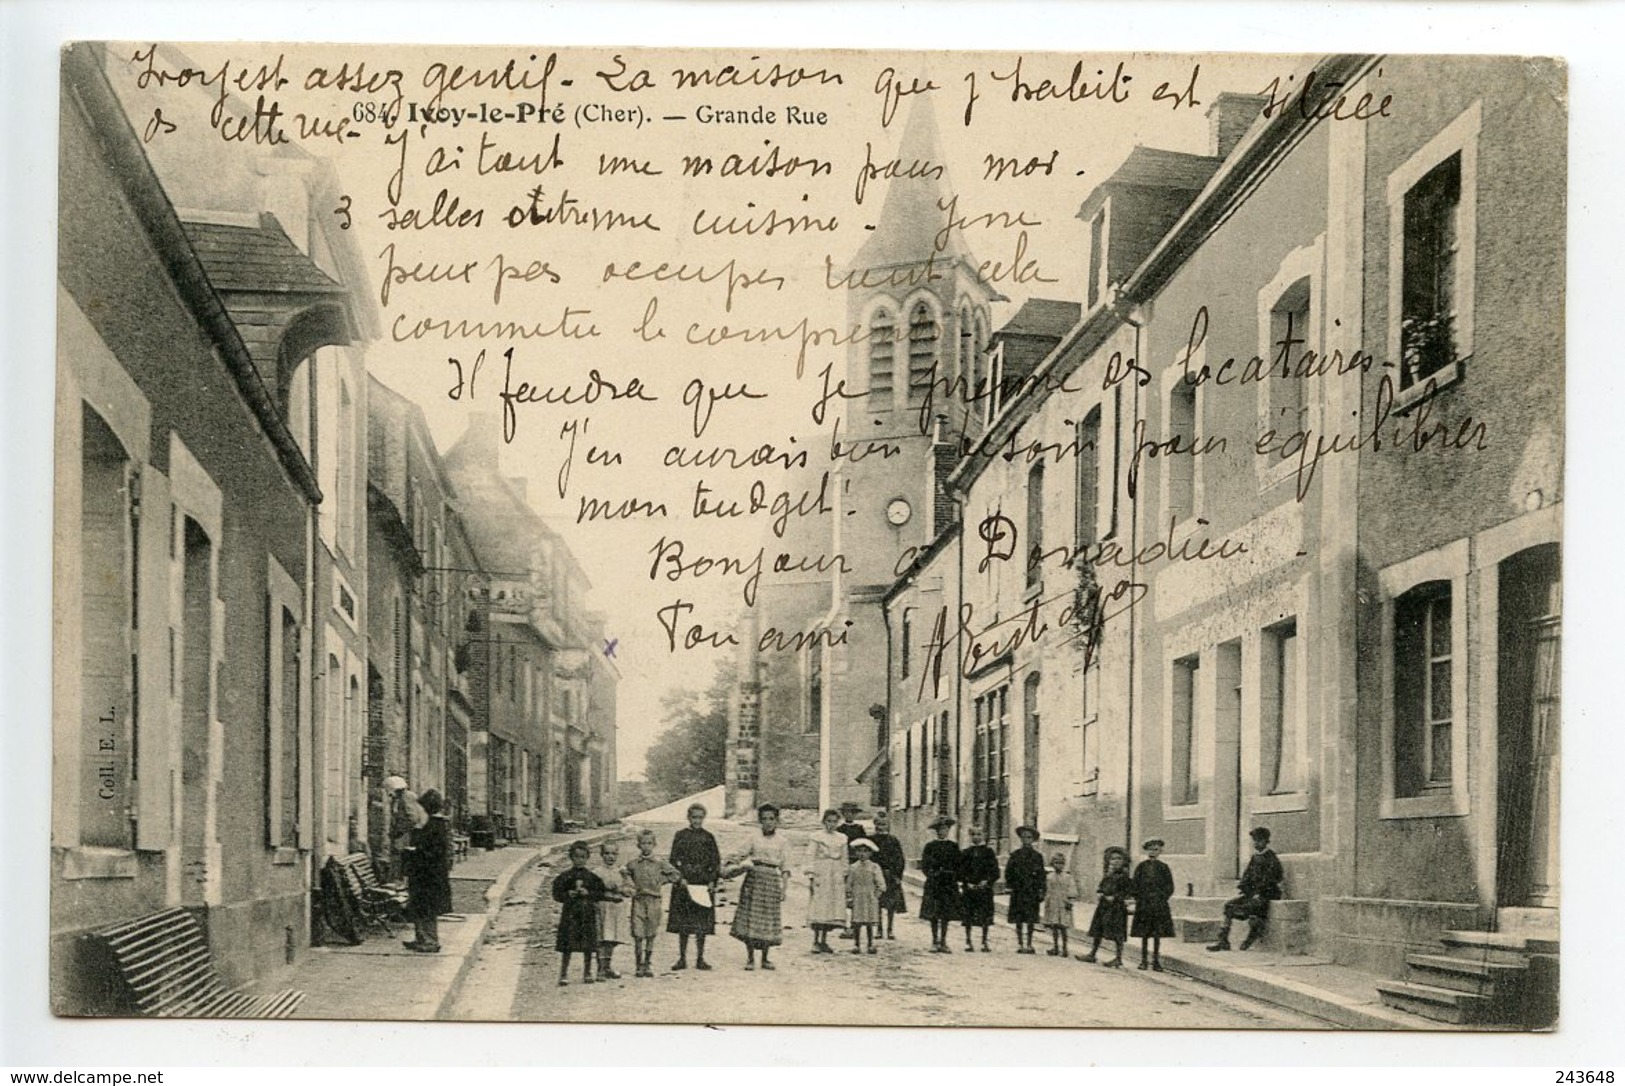 Ivoy est assez gentil. La maison que j'habite est située
ds cette rue.
684. Ivoy-le-Pré (Cher). — Grande Rue
J'ai tout une maison pour moi.
3 salles et une cuisine. Je ne
peux pas occuper tout cela
comme tu le comprends
Il faudra que je prenne des locataires.
J'en aurais bien besoin pour équilibrer
mon budget!
Bonjour à Donnadieu.
Ton ami
x
Coll. E. L.
www.delcampe.net
243648